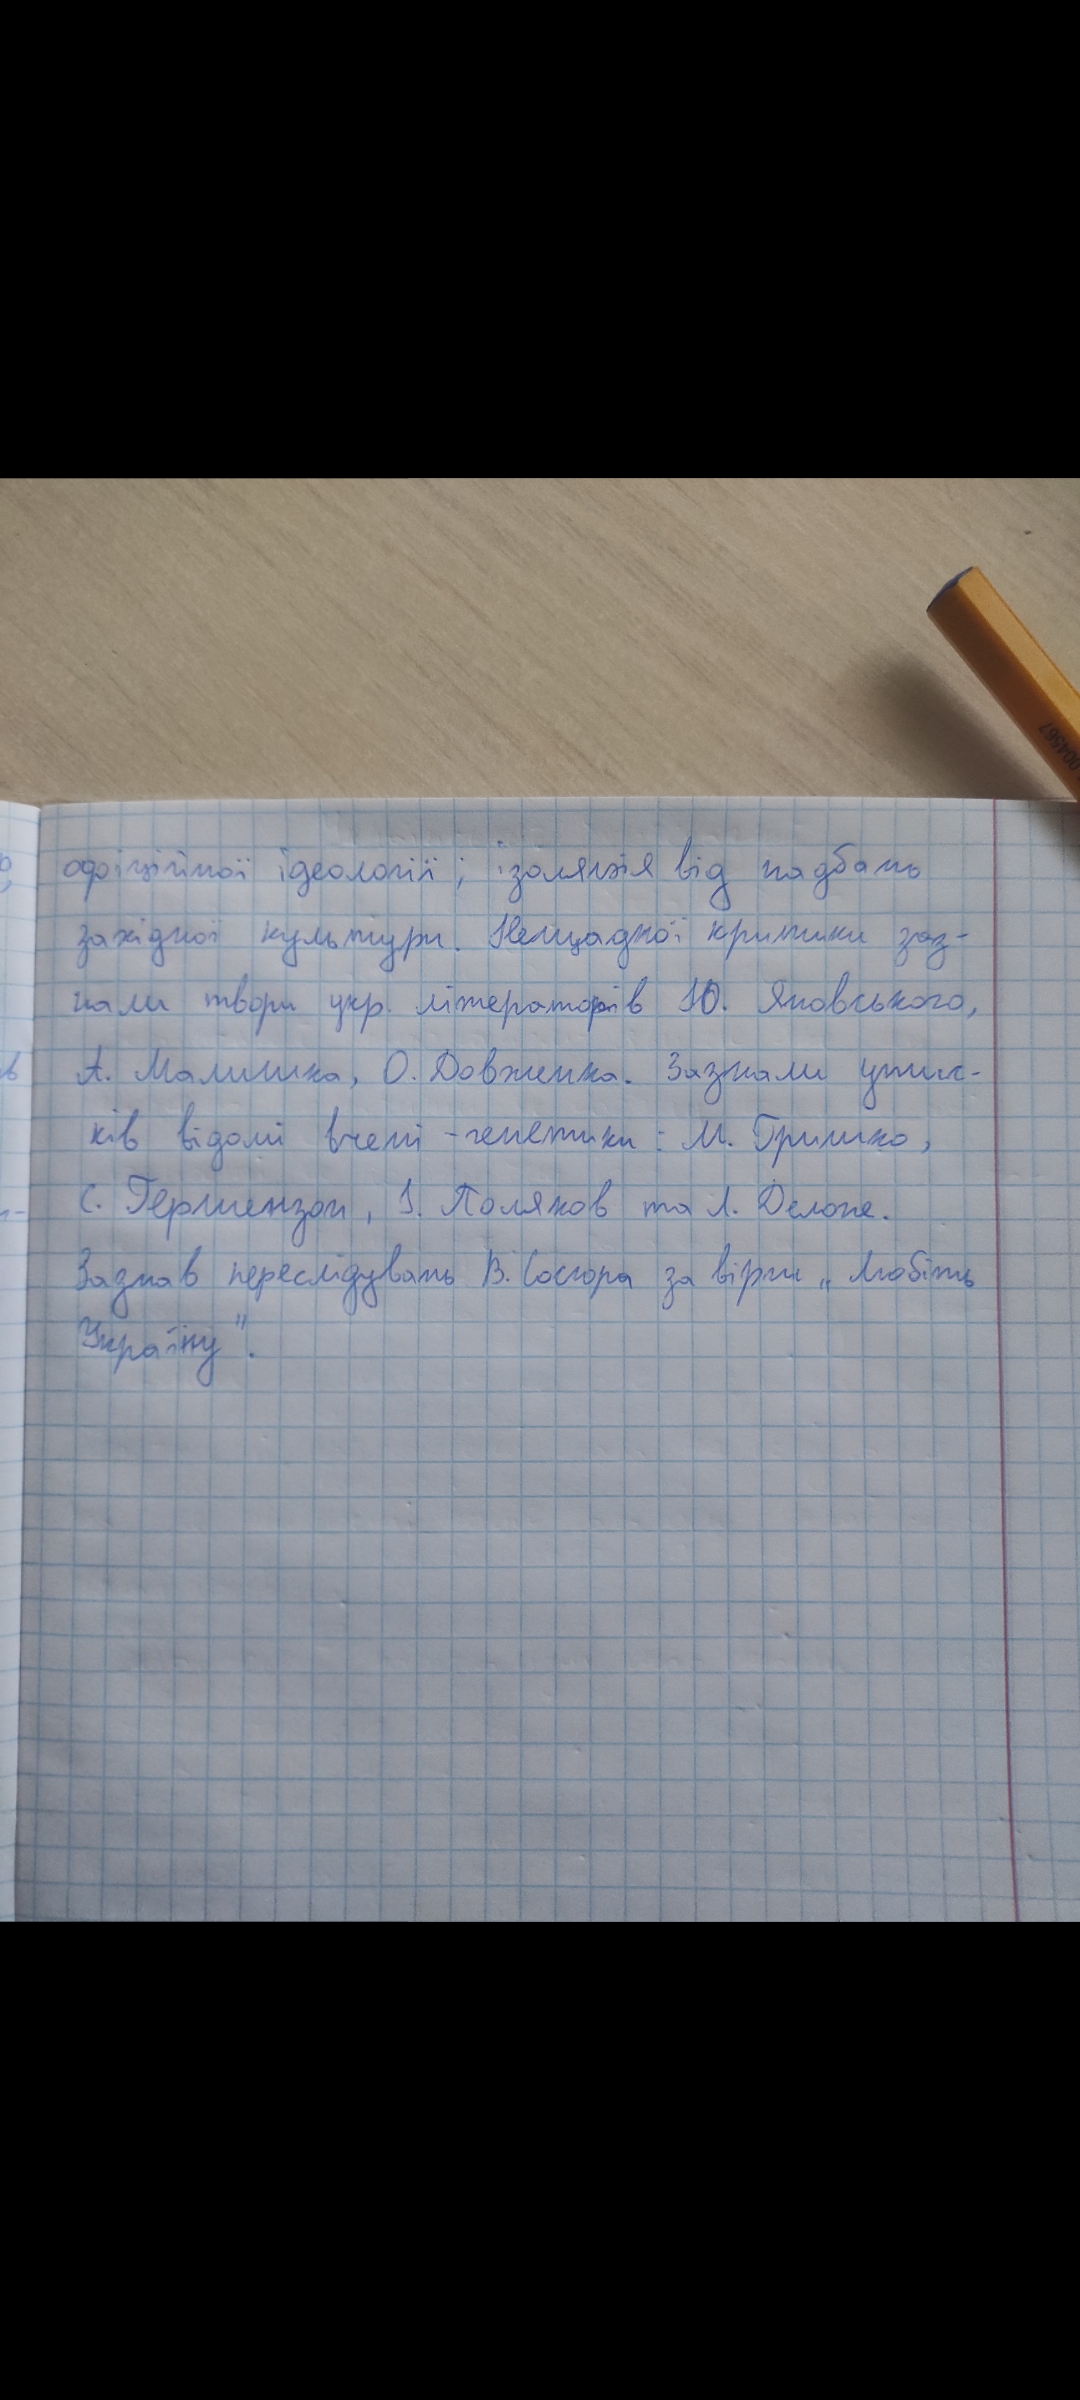 офіційної ідеології; ізоляція від надбань
західної культури. Нещадної критики заз-
нали твори укр. літераторів Ю. Яновського,
А. Малишка, О. Довженка. Зазнали утис-
ків відомі вчені-генетики: М. Гришко,
С. Гершензон, І. Поляков та Л. Делоне.
Зазнав переслідувань В. Сосюра за вірш „Любіть
Україну".
004567